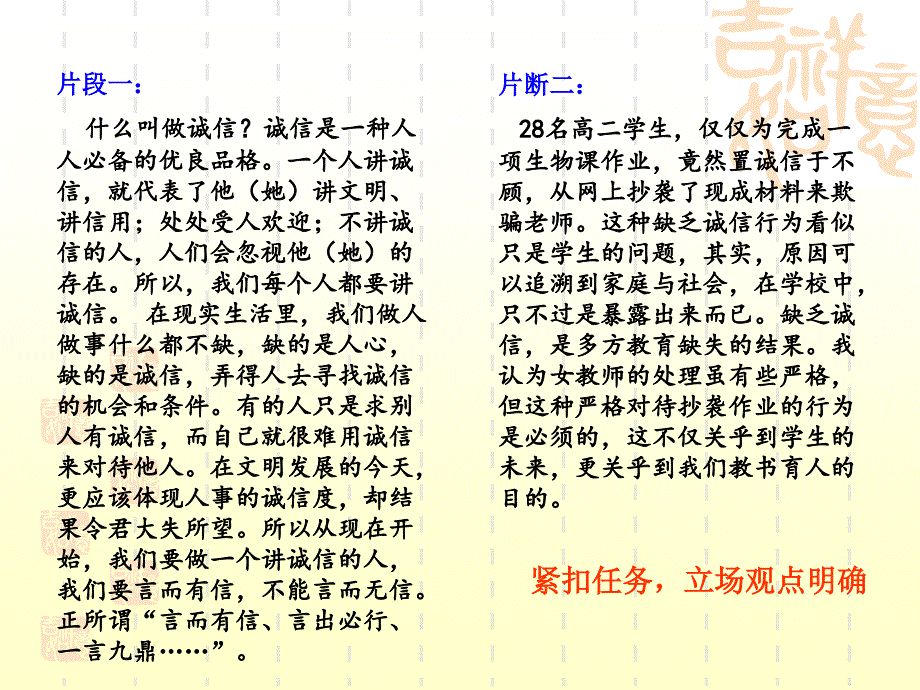 吉祥如意
片段一：
什么叫做诚信？诚信是一种人
人必备的优良品格。一个人讲诚
信，就代表了他（她）讲文明、
讲信用；处处受人欢迎；不讲诚
信的人，人们会忽视他（她）的
存在。所以，我们每个人都要讲
诚信。 在现实生活里，我们做人
做事什么都不缺，缺的是人心，
缺的是诚信，弄得人去寻找诚信
的机会和条件。有的人只是求别
人有诚信，而自己就很难用诚信
来对待他人。在文明发展的今天，
更应该体现人事的诚信度，却结
果令君大失所望。所以从现在开
始，我们要做一个讲诚信的人，
我们要言而有信，不能言而无信。
正所谓“言而有信、言出必行、
一言九鼎……”。
片断二：
28名高二学生，仅仅为完成一
项生物课作业，竟然置诚信于不
顾，从网上抄袭了现成材料来欺
骗老师。这种缺乏诚信行为看似
只是学生的问题，其实，原因可
以追溯到家庭与社会，在学校中，
只不过是暴露出来而已。缺乏诚
信，是多方教育缺失的结果。我
认为女教师的处理虽有些严格，
但这种严格对待抄袭作业的行为
是必须的，这不仅关乎到学生的
未来，更关乎到我们教书育人的
目的。
紧扣任务，立场观点明确